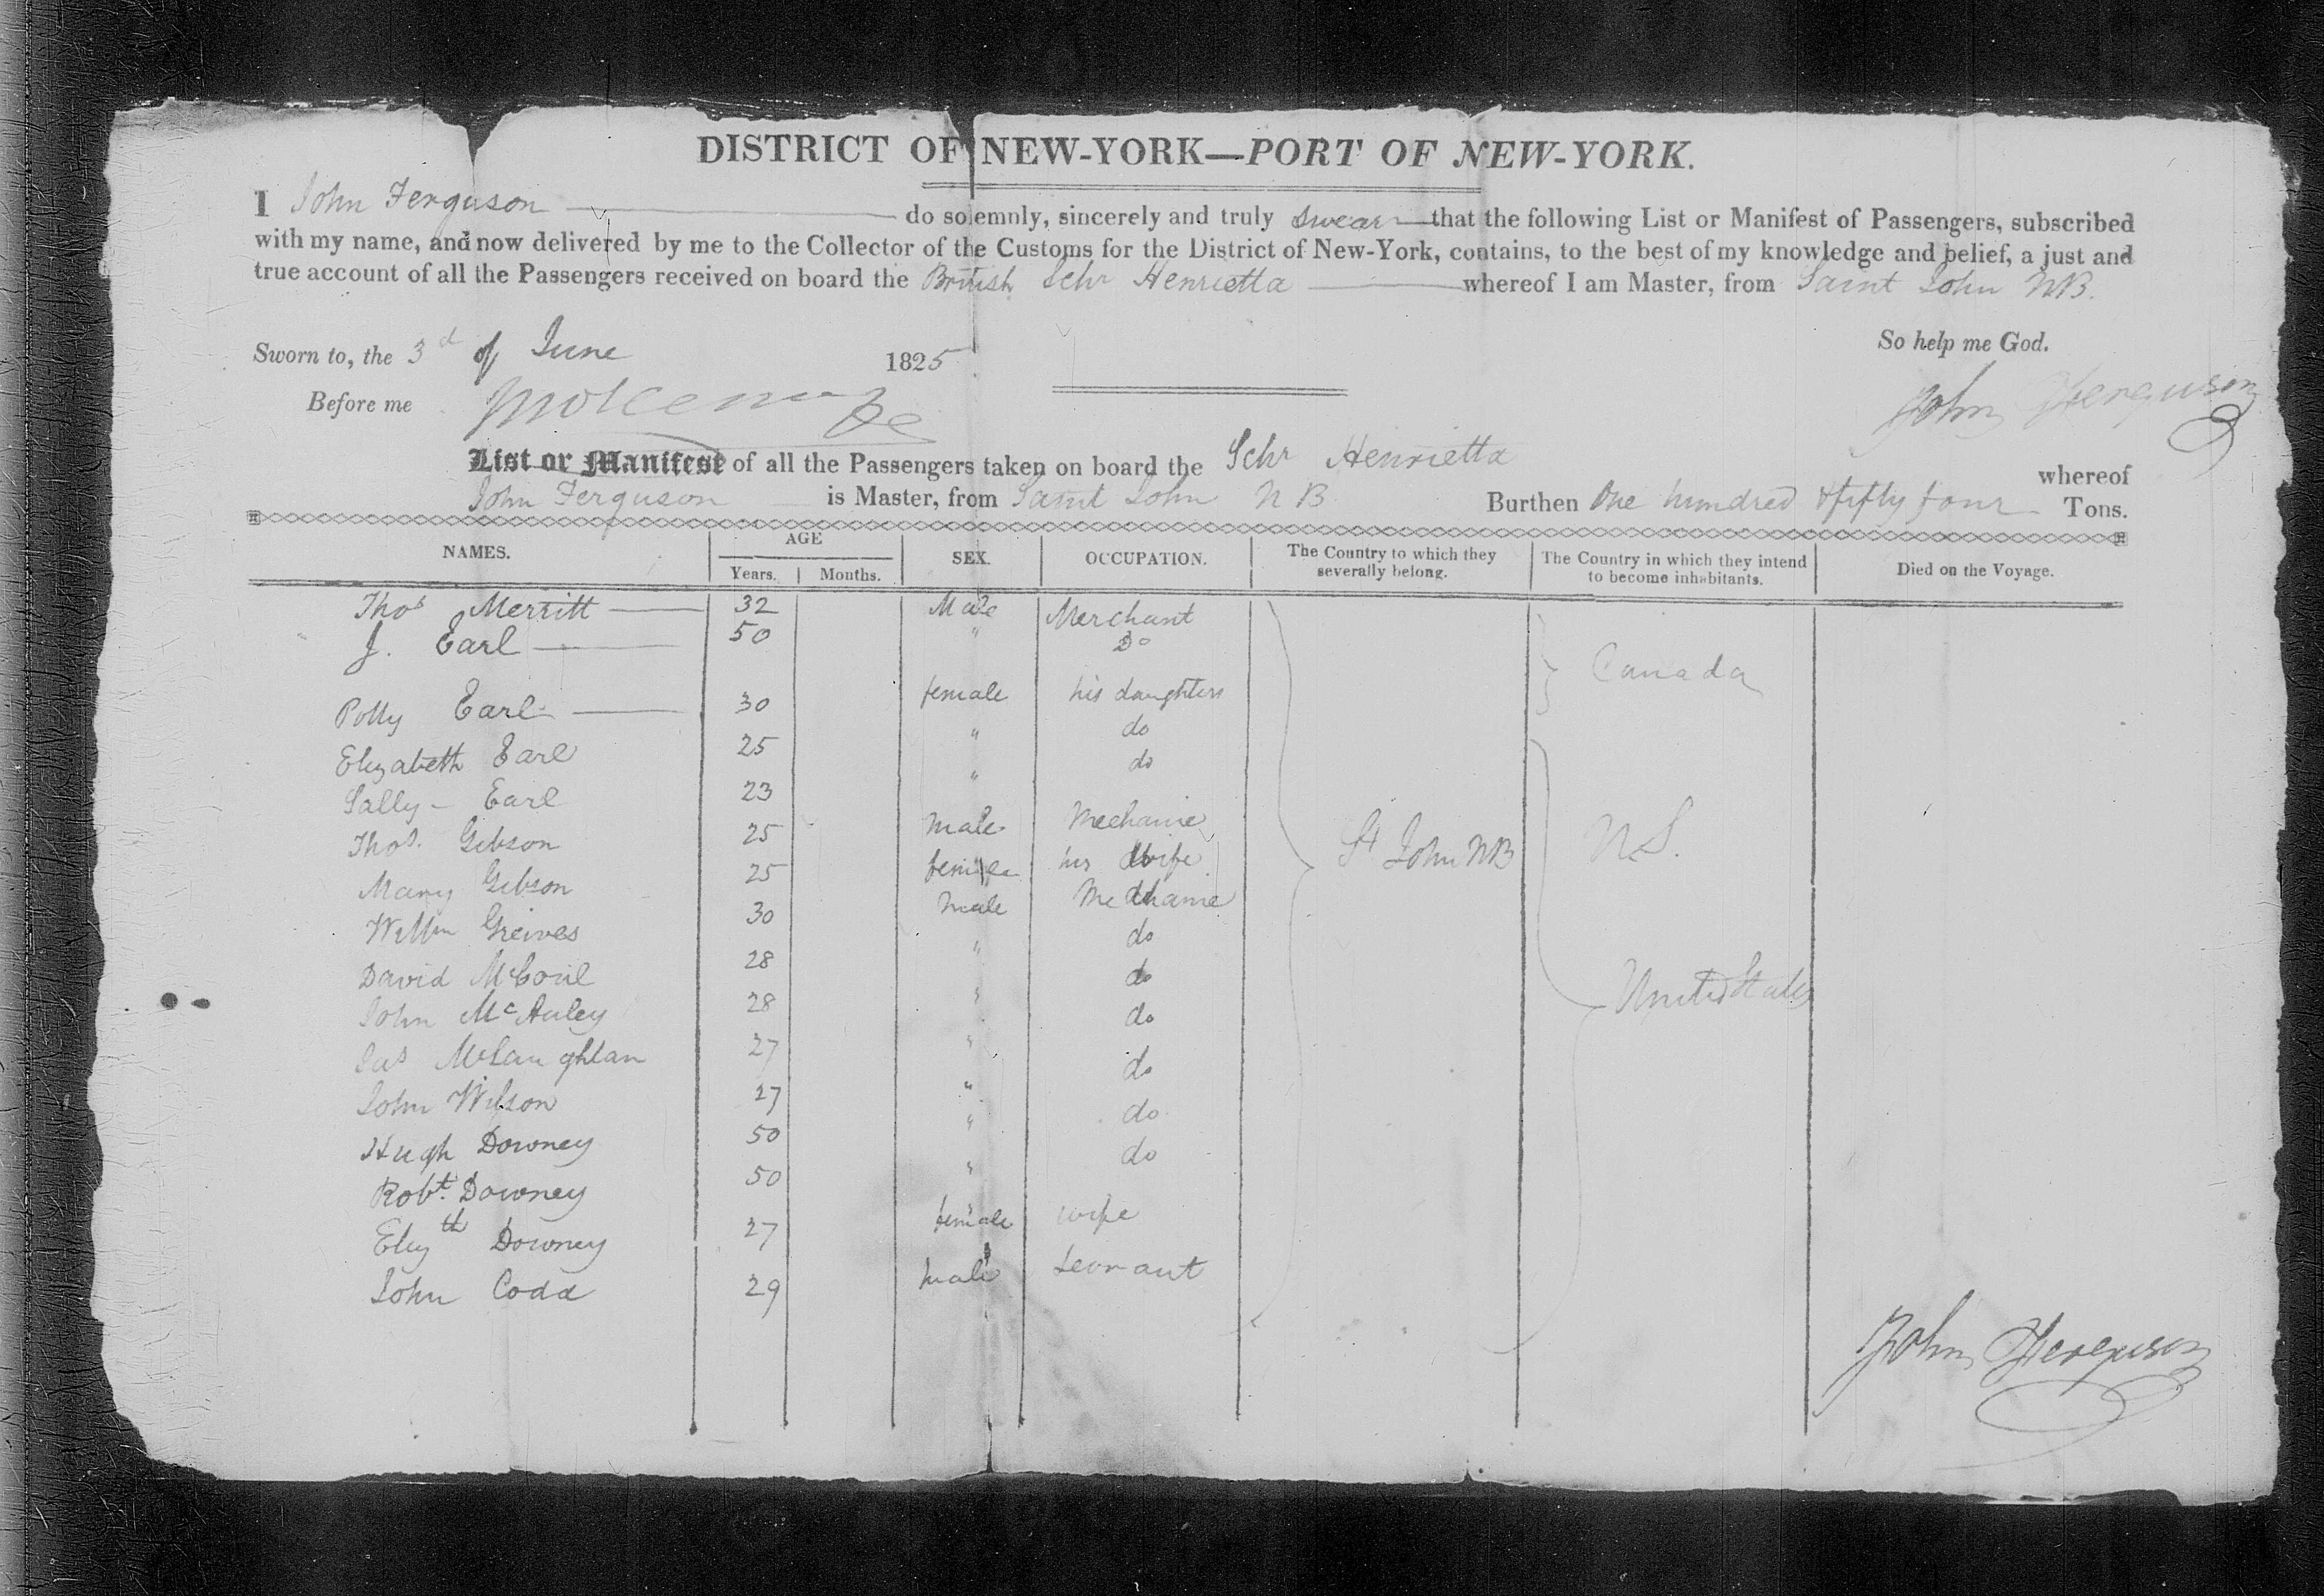 DISTRICT OF NEW-YORK—PORT OF NEW-YORK.
I John Ferguson do solemnly, sincerely and truly swear that the following List or Manifest of Passengers, subscribed
with my name, and now delivered by me to the Collector of the Customs for the District of New-York, contains, to the best of my knowledge and belief, a just and
true account of all the Passengers received on board the British Schr Henrietta whereof I am Master, from Saint John NB.
So help me God.
Sworn to, the 3d of June 1825
John Ferguson
Before me
List or Manifest of all the Passengers taken on board the Schr Henrietta whereof
John Ferguson is Master, from Saint John N B Burthen One hundred & fifty four Tons.
NAMES. AGE Years. Months. SEX. OCCUPATION. The Country to which they severally belong. The Country in which they intend to become inhabitants. Died on the Voyage.
Thos Merritt 32 Male Merchant
J. Earl 50 " Do
Canada
Polly Earl 30 female his daughters
Elizabeth Earl 25 " do
Sally Earl 23 " do
Thos. Gibson 25 male Mechanic
St John NB N.S.
Mary Gibson 25 female his wife
Willm Greives 30 male Mechanic
David 28 " do
John McAuley 28 " do
United States
Jas McLaughlan 27 " do
John Wilson 27 " do
Hugh Downey 50 " do
Robt. Downey 50 " do
Elizth Downey 27 female wife
John Codd 29 male Servant
John Ferguson